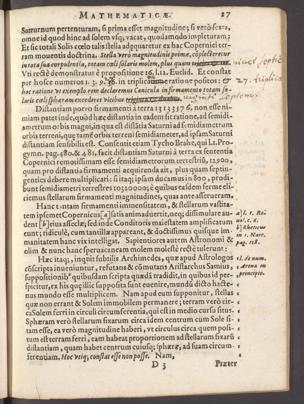 MATHEMATICÆ. 27
Saturnum pertenturam, si prima esset magnitudine; si verò
omne id quod hinc ad solem vsq;, vacat, quodammodo impleturam;
Et sic totali Solis cœlo talis stella adæquaretur ex hac Coperniei ter-
ram mouentis doctrina. Stella verò magnitudinis primæ,
in tota sua corpulentia, totam cœli solaris molem, plus quam
Vti rectè demonstratur è propositione 16. l.12. Euclid. Et constat
per hosce numeros 1. 3. in triplicatione positos:
hac ratione vt exemplo rem declaremus Canicula in firmamento totam so-
laris cœli sphæram excederet vicibus
Distantiam porro firmamenti à terra 13133376, non esse ni-
miam patet inde, quòd hæc distantia in eadem sit ratione, ad semidi-
metrum orbis magni, in qua est distātia Saturni ad semidimetrum or-
bis terreni, quē tamē orbis terreni semidiameter, ad ipsam Saturni
distantiam sensibilis est. Consentit etiam Tycho Brahe, qui l.1. Pro-
gymn. pag. 480. & 481, facit distantiam Saturni à terra ex sententia
Copernici renouissimam esse semidiametrorum terrestriū, 12900,
quam pro distantia firmamenti acquirenda ait, plus quam septin-
genties debere multiplicari: si itaq; ipsum ducamus in 800, prodi-
bunt semidimetri terrestres 10320000; è quibus eædem ferme eli-
cientur stellarum firmamenti magnitudines, quas ante asseruerant.
Hanc tantam firmamenti immensitatem, & stellarum vastita-
tem ipsemet Copernicus[a] satis animaduertit, necq; dissimulare au-
dent [b] eius asseclæ; sed in de Conditoris maiestatem amplificatum
eunt; ridiculè, cum tantilla appareant, & doctissimus quisque im-
manitatem hanc vix intelligat. Sapientiores autem Astronomi &
olim & nunc hanc sperūt
Hæc itaq;, iniqui subtilis Archimedes, quæ apud Astrologos
cōscripta inueniuntur, refutans & cōmutans Aristarchus Samius,
suppositionib9 quibusdam scripta quædā tradidit, in quibus id per-
spicitur, ex his quę illic supposita sunt euenire, mundū dicto hacte-
nus mundo esse multiplicem. Nam apud eum supponitur, stellas
quæ non errant & Solem immobilem permanere; terram verò cir-
ca Solem ferri in circuli circumferentia, qui est in medio cursu situs.
Sphæram verò stellarum fixarum circa idem centrum cum Sole si-
tam esse, ea verò magnitudine haberi, vt circulus circa quem posi-
tum est terram ferri, eam habeat proportionem ad fixarum stellarū
distantiam, quam habet centrum cuiusq; sphæræ, ad suam circum-
ferentiam. Hoc vtiq; constat esse non posse. Nam,
D 3 Præter
a] l. 1. Re-
uol. c. 8.
b] Rheticus
in 1. Narr.
pag. 118.
c] de num.
Arenæ in
principio.